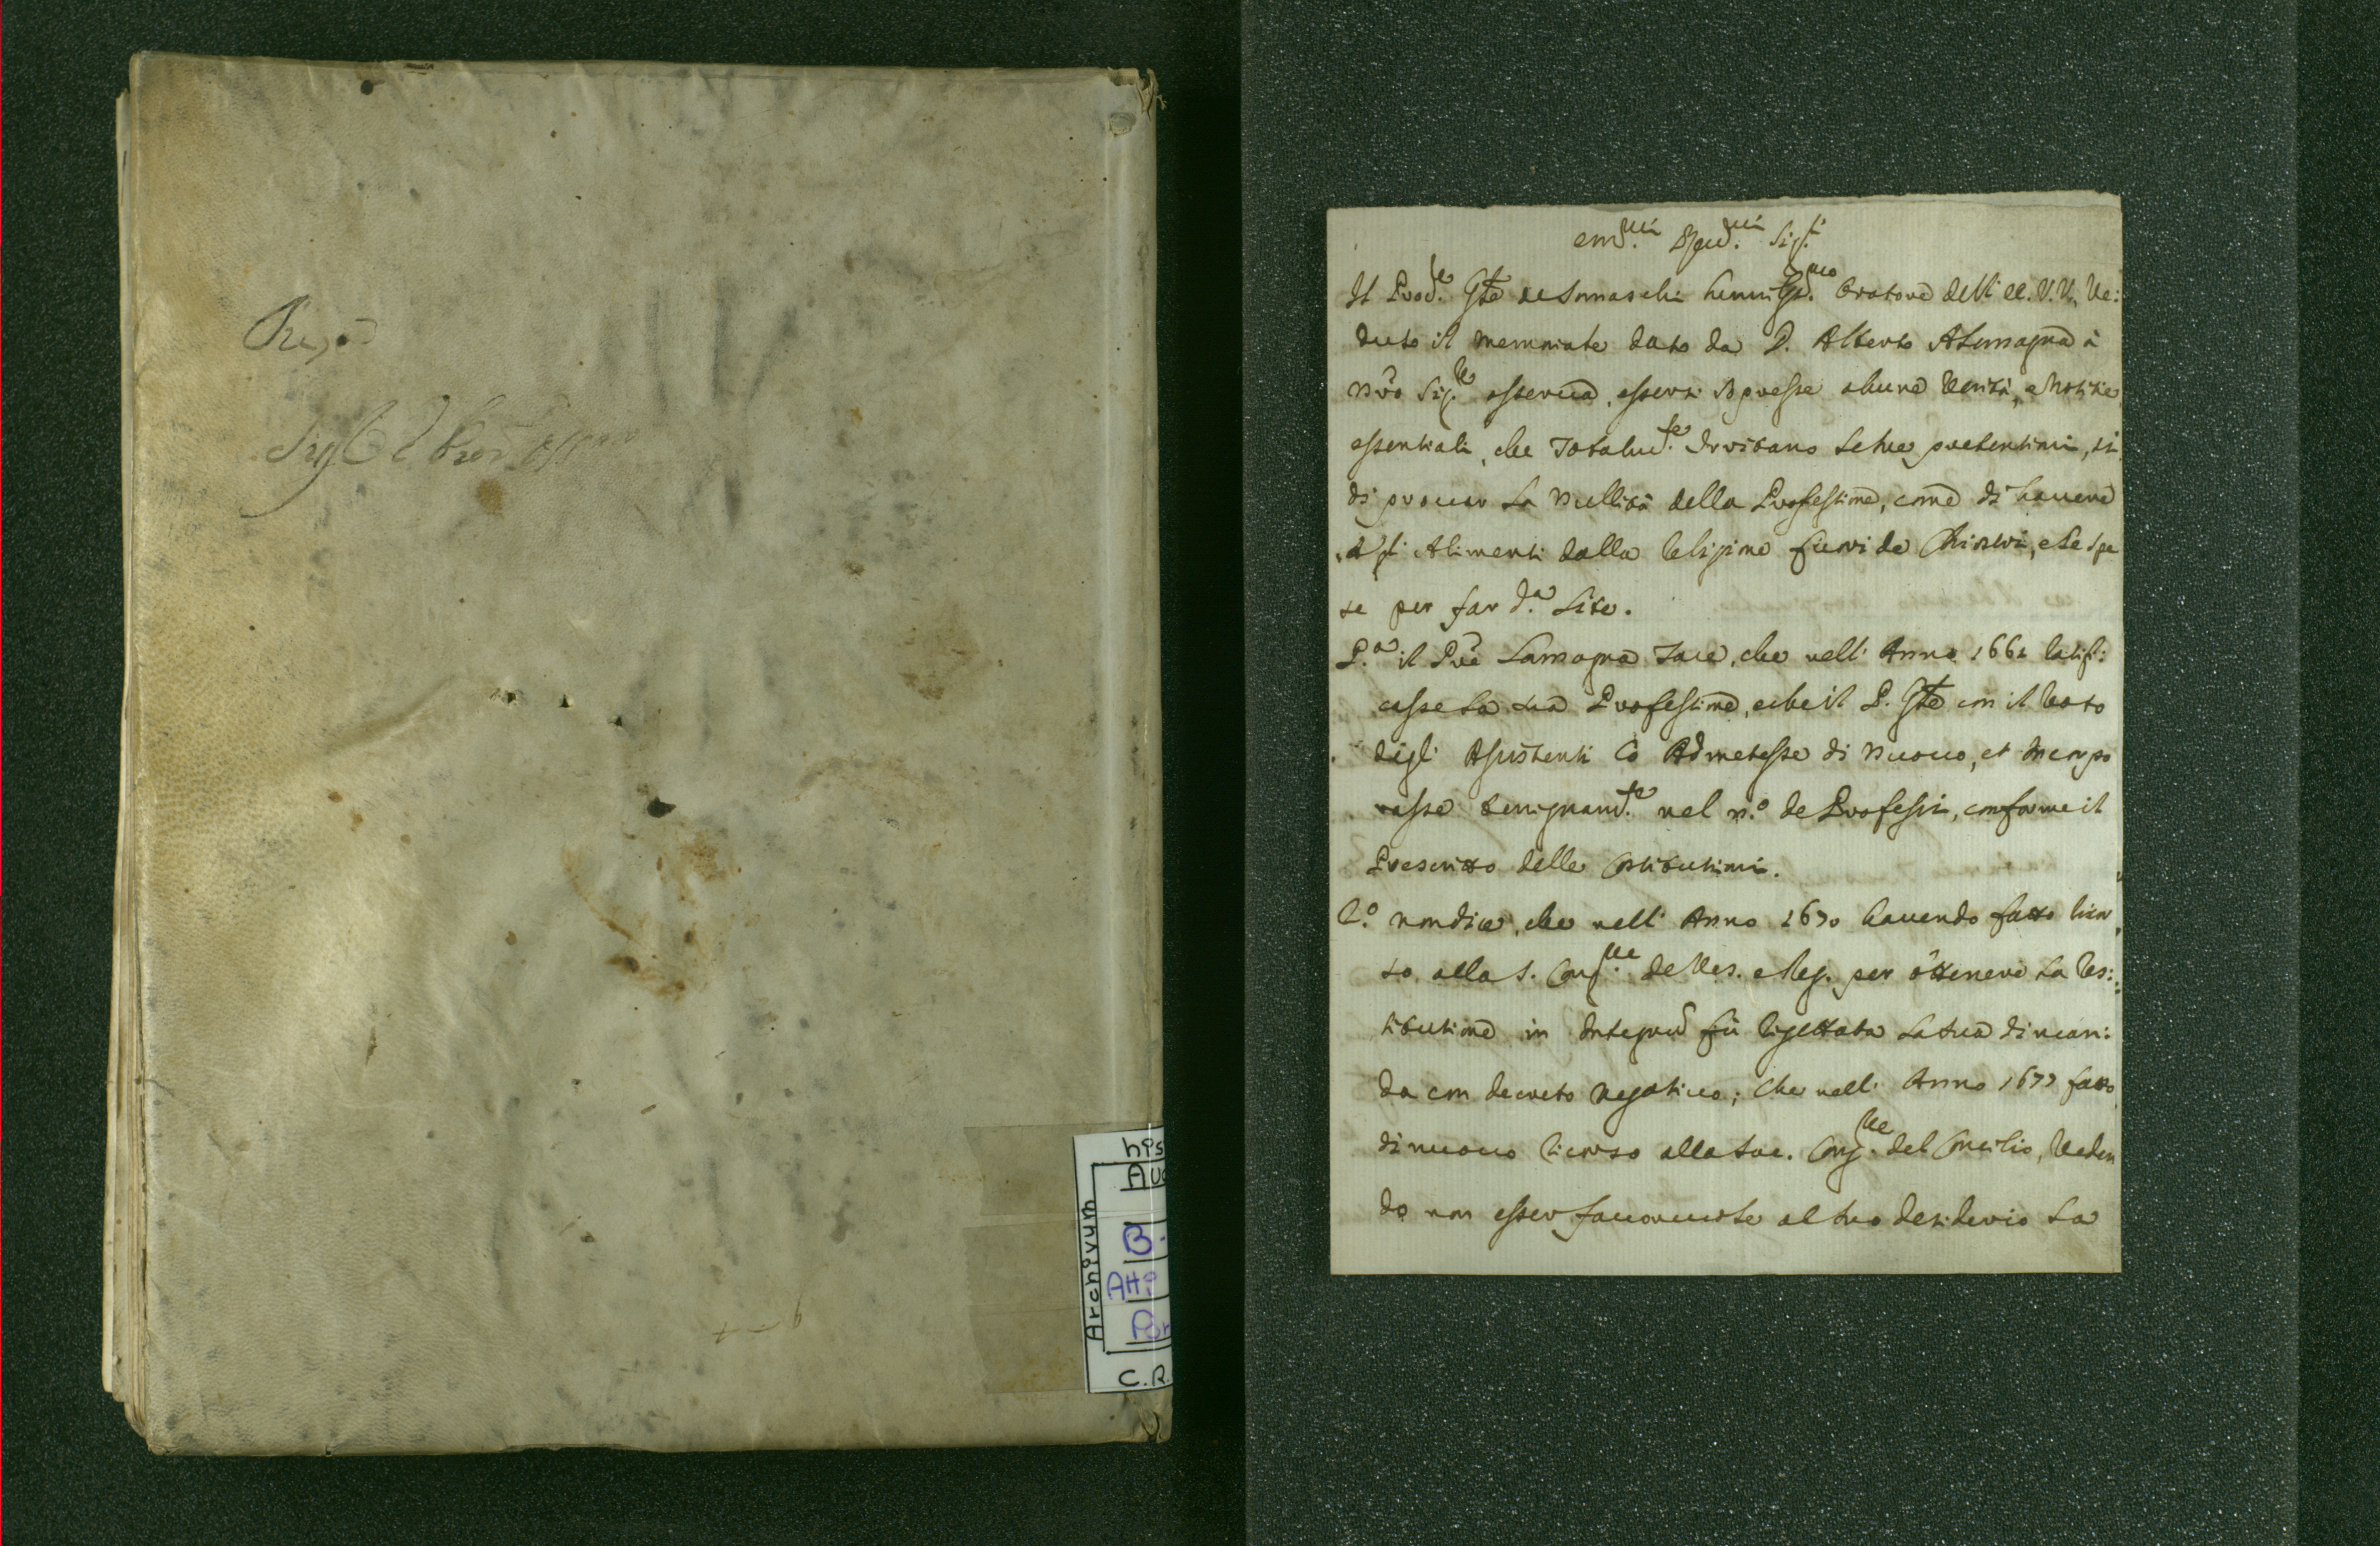 his
Archivum
B.
Atti
C.R.
em.mi Reu.mi Sig.ri
Il Prod.e Gñle de Somaschi humiliss.mo Oratore dell' ee. V.V. Ve:
duto il memoriale dato da D. Alberto Alamagna à
nr̃o Sig.re osserua, essersi soppresse alcune Verità, e Notitie
essentiali, che totalm.te le sue pretentioni, si
di prouar la nullità della Professione, come di hauere
gli Alimenti dalla Religione fuori de Chiostri, e le spe
se per far d.a Lite.
P.a il Pr̃e Lamagna tace, che nell' Anno 1661 ratifi:
casse la sua Professione, e che il P. Gñle con il Voto
degli Assistenti lo Admetesse di nuouo, et incorpo
rasse benignam.te nel n.o de Professi, conforme il
Prescritto delle Constitutioni.
2.o non dice, che nell' Anno 1670 hauendo fatto ricor
so alla S. Cong.ne de Ves. e Reg. per ottenere la Res:
titutione in Integrum fù rigettata la sua diman:
da con decreto negatiuo; Che nell' Anno 1677 fatto
di nuouo ricorso alla Sac. Cong.ne del Concilio, Veden
do non esser fauoreuole al suo desiderio la